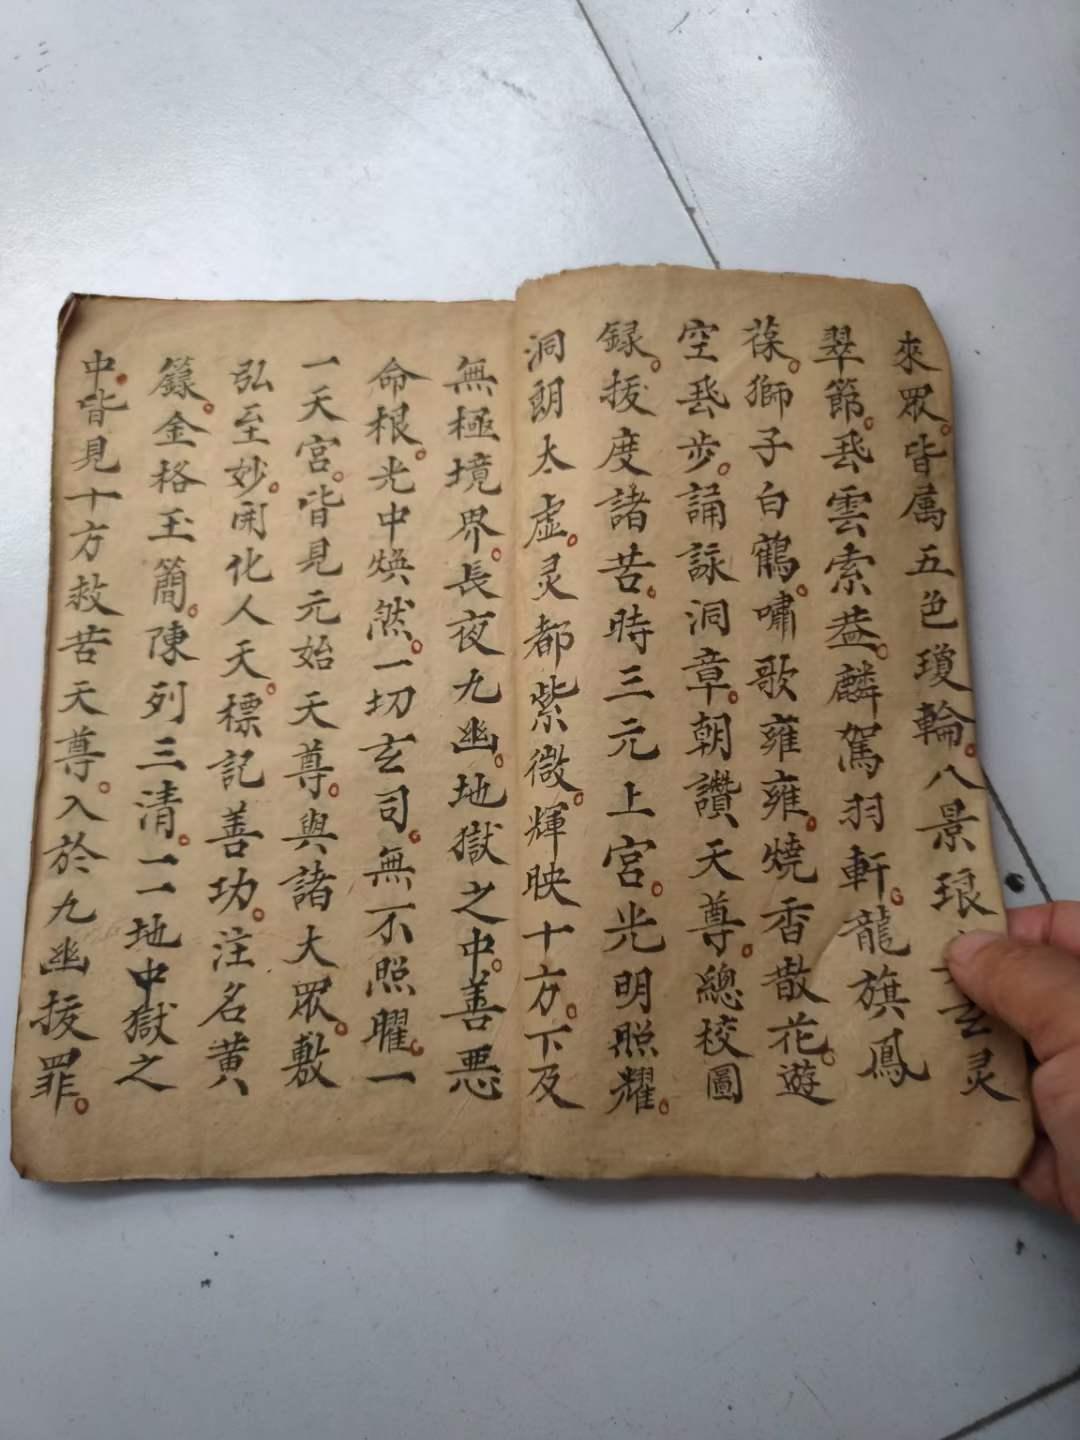 來眾。皆属五色瓊輪。八景琅玄灵
翠節。飛雲索蓋。麟駕羽軒。龍旗鳳
葆。獅子白鶴。嘯歌雍雍。燒香散花。遊
空飛步。誦詠洞章。朝讚天尊。總校圖
録。拔度諸苦。時三元上宮。光明照耀。
洞朗太虛。灵都紫微。輝映十方。下及
無極境界。長夜九幽。地獄之中。善恶
命根。光中焕然。一切玄司。無不照曜。一
一天宮。皆見元始天尊。與諸大眾。敷
弘至妙。開化人天。標記善功。注名黃
籙。金格玉簡。陳列三清。一一地中獄之
中。皆見十方救苦天尊。入於九幽拔罪。